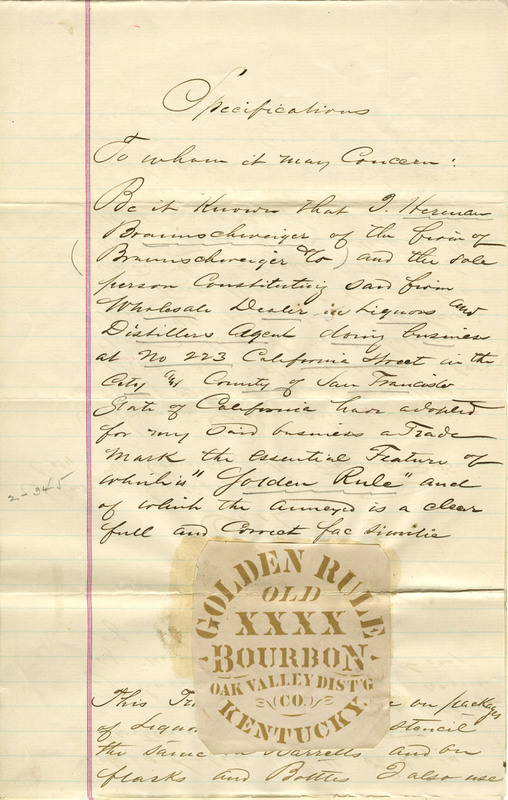 Specifications
To whom it may Concern:
Be it Known that I. Herman
Braunschweiger of the firm of
(Braunschweiger & Co) and the sole
person Constituting said firm
Wholesale Dealer in Liquors and
Distillers Agent doing business
at No 223 California Street in the
City & County of San Francisco
State of California have adopted
for my said business a Trade
Mark the essential Feature of
which is "Golden Rule" and
of which the annexed is a clear
full and Correct fac similie
2-345
GOLDEN RULE
OLD
XXXX
BOURBON
OAK VALLEY DIST'G
(CO.)
KENTUCKY.
This on packages
of stencil
the same on Barrells and on
flasks and Bottles I also use